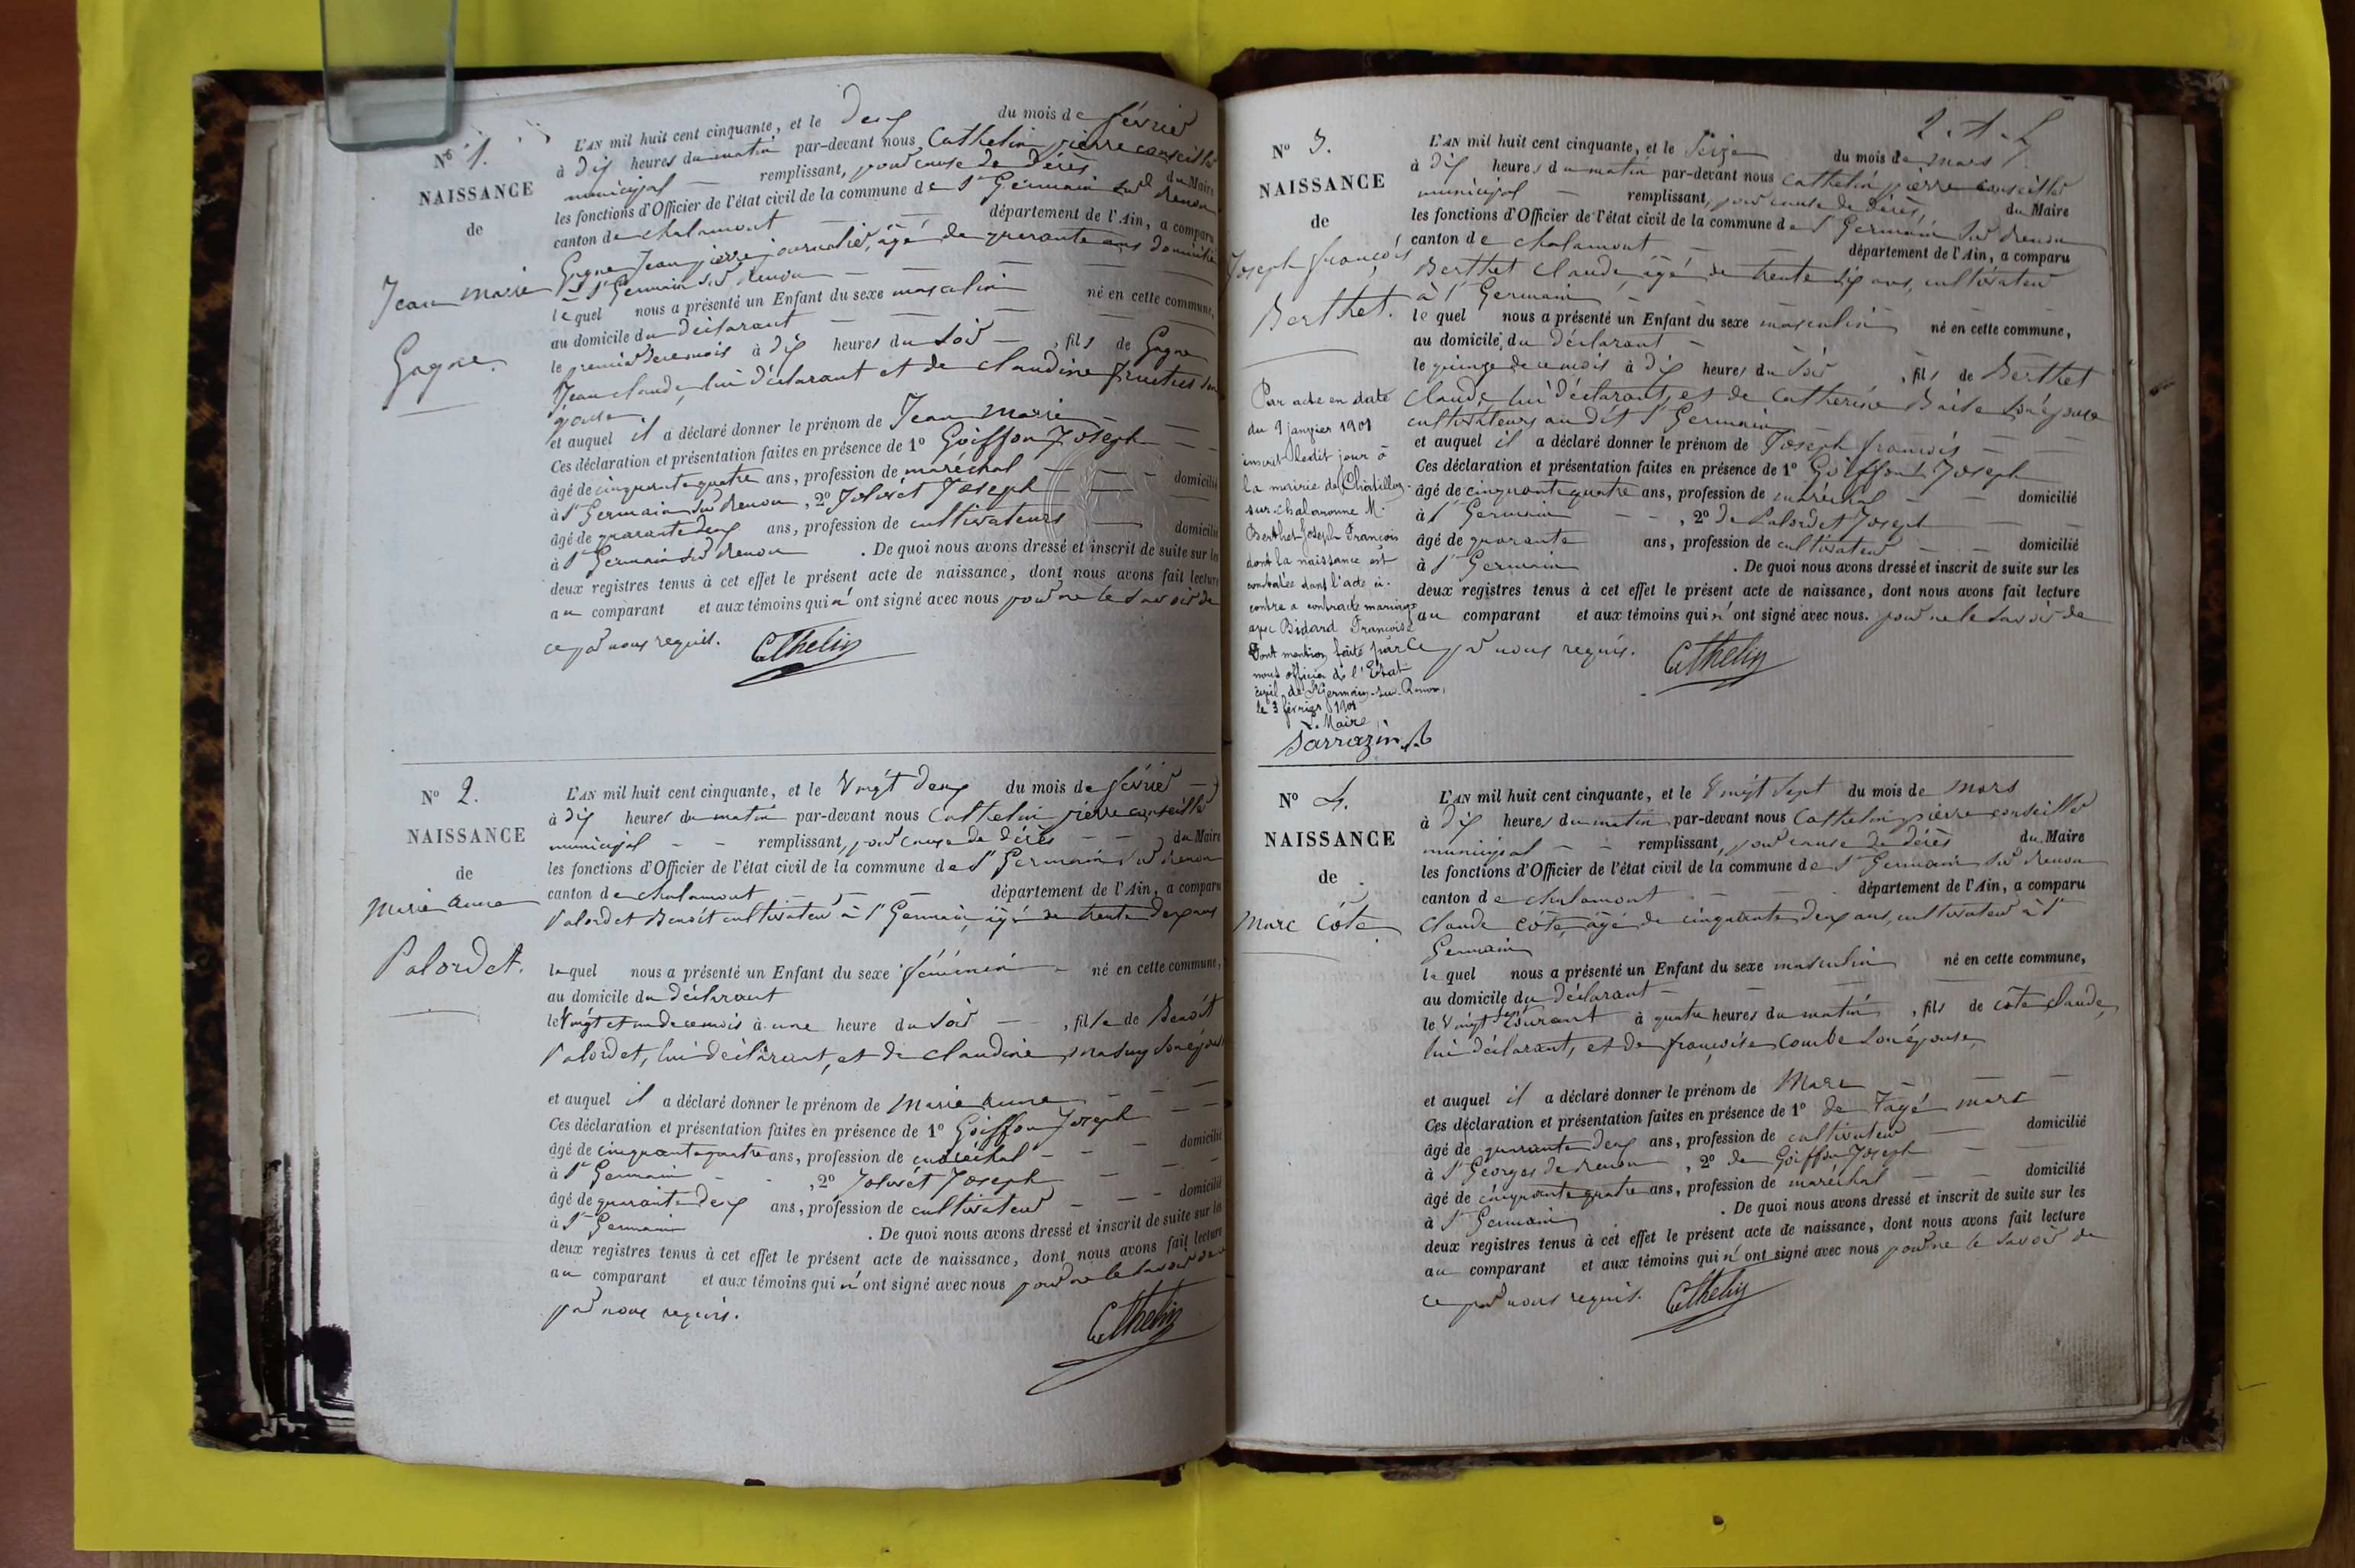 No 1.
NAISSANCE
de
Jean marie
Gagne.
L'AN mil huit cent cinquante, et le deux du mois de février
à dix heures du matin par-devant nous Cathelin pierre conseiller
municipal remplissant, pour cause de décès du Maire
les fonctions d'Officier de l'état civil de la commune de St Germain sur renon
canton de chalamont département de l'Ain, a comparu
Gagne Jean pierre journalier, âgé de quarante ans domicilié
à St Germain sur renon
lequel nous a présenté un Enfant du sexe masculin né en cette commune,
au domicile du déclarant
le premier de ce mois à dix heures du soir, fils de Gagne
Jean claude, lui déclarant et de claudine
épouse
et auquel il a déclaré donner le prénom de Jean Marie
Ces déclaration et présentation faites en présence de 1º Goiffon Joseph
âgé de cinquante quatre ans, profession de maréchal domicilié
à St Germain sur renon, 2º Joseph
âgé de quarante deux ans, profession de cultivateurs domicilié
à St Germain sur renon. De quoi nous avons dressé et inscrit de suite sur les
deux registres tenus à cet effet le présent acte de naissance, dont nous avons fait lecture
au comparant et aux témoins qui n'ont signé avec nous pour ne le savoir de
ce par nous requis. Cathelin
No 2.
NAISSANCE
de
Marie anne
Palordet.
L'AN mil huit cent cinquante, et le Vingt deux du mois de février
à dix heures du matin par-devant nous Cathelin pierre conseiller
municipal remplissant, pour cause de décès du Maire
les fonctions d'Officier de l'état civil de la commune de St Germain sur renon
canton de chalamont département de l'Ain, a comparu
Palordet Benoît cultivateur à St Germain, âgé de trente deux ans
lequel nous a présenté un Enfant du sexe féminin né en cette commune,
au domicile du déclarant
le Vingt et un de ce mois à une heure du soir, fille de Benoît
Palordet, lui déclarant, et de claudine son épouse
et auquel il a déclaré donner le prénom de Marie anne
Ces déclaration et présentation faites en présence de 1º Goiffon Joseph
âgé de cinquante quatre ans, profession de maréchal domicilié
à St Germain, 2º Joseph
âgé de quarante deux ans, profession de cultivateur domicilié
à St Germain. De quoi nous avons dressé et inscrit de suite sur les
deux registres tenus à cet effet le présent acte de naissance, dont nous avons fait lecture
au comparant et aux témoins qui n'ont signé avec nous pour ne le savoir de ce
par nous requis.
Cathelin
No 3.
NAISSANCE
de
Joseph françois
Berthet.
Par acte en date
du 9 janvier 1901
inscrit ledit jour à
la mairie de Châtillon-
sur-chalaronne M.
Berthet Joseph François
dont la naissance est
constatée dans l'acte ci-
contre a contracté mariage
avec Bidard Françoise
Dont mention faite par
nous officier de l'Etat
civil de St Germain-sur-Renon,
le 3 février 1901
Le Maire
Sarrazin
L'AN mil huit cent cinquante, et le Seize du mois de mars
à dix heures du matin par-devant nous Cathelin pierre conseiller
municipal remplissant, pour cause de décès, du Maire
les fonctions d'Officier de l'état civil de la commune de St Germain sur renon
canton de chalamont département de l'Ain, a comparu
Berthet Claude, âgé de trente six ans, cultivateur
à St Germain
lequel nous a présenté un Enfant du sexe masculin né en cette commune,
au domicile du déclarant
le quinze de ce mois à dix heures du soir, fils de Berthet
claude, lui déclarant, et de Catherine son épouse
cultivateurs au dit St Germain
et auquel il a déclaré donner le prénom de Joseph françois
Ces déclaration et présentation faites en présence de 1º Goiffon Joseph
âgé de cinquante quatre ans, profession de maréchal domicilié
à St Germain, 2º de Palordet Joseph
âgé de quarante ans, profession de cultivateur domicilié
à St Germain. De quoi nous avons dressé et inscrit de suite sur les
deux registres tenus à cet effet le présent acte de naissance, dont nous avons fait lecture
au comparant et aux témoins qui n'ont signé avec nous. pour ne le savoir de
ce par nous requis. Cathelin
No 4.
NAISSANCE
de
Marc Côte
L'AN mil huit cent cinquante, et le Vingt Sept du mois de Mars
à dix heures du matin par-devant nous Cathelin pierre conseiller
municipal remplissant, pour cause de décès du Maire
les fonctions d'Officier de l'état civil de la commune de St Germain sur renon
canton de chalamont département de l'Ain, a comparu
Claude Côte, âgé de cinquante deux ans, cultivateur à St
Germain
lequel nous a présenté un Enfant du sexe masculin né en cette commune,
au domicile du déclarant
le Vingt sept courant à quatre heures du matin, fils de côte claude,
lui déclarant, et de françoise Combe son épouse,
et auquel il a déclaré donner le prénom de Marc
Ces déclaration et présentation faites en présence de 1º de marc
âgé de quarante deux ans, profession de cultivateur domicilié
à St Georges de renon, 2º de Goiffon Joseph
âgé de cinquante quatre ans, profession de maréchal domicilié
à St Germain. De quoi nous avons dressé et inscrit de suite sur les
deux registres tenus à cet effet le présent acte de naissance, dont nous avons fait lecture
au comparant et aux témoins qui n'ont signé avec nous pour ne le savoir de
ce par nous requis. Cathelin